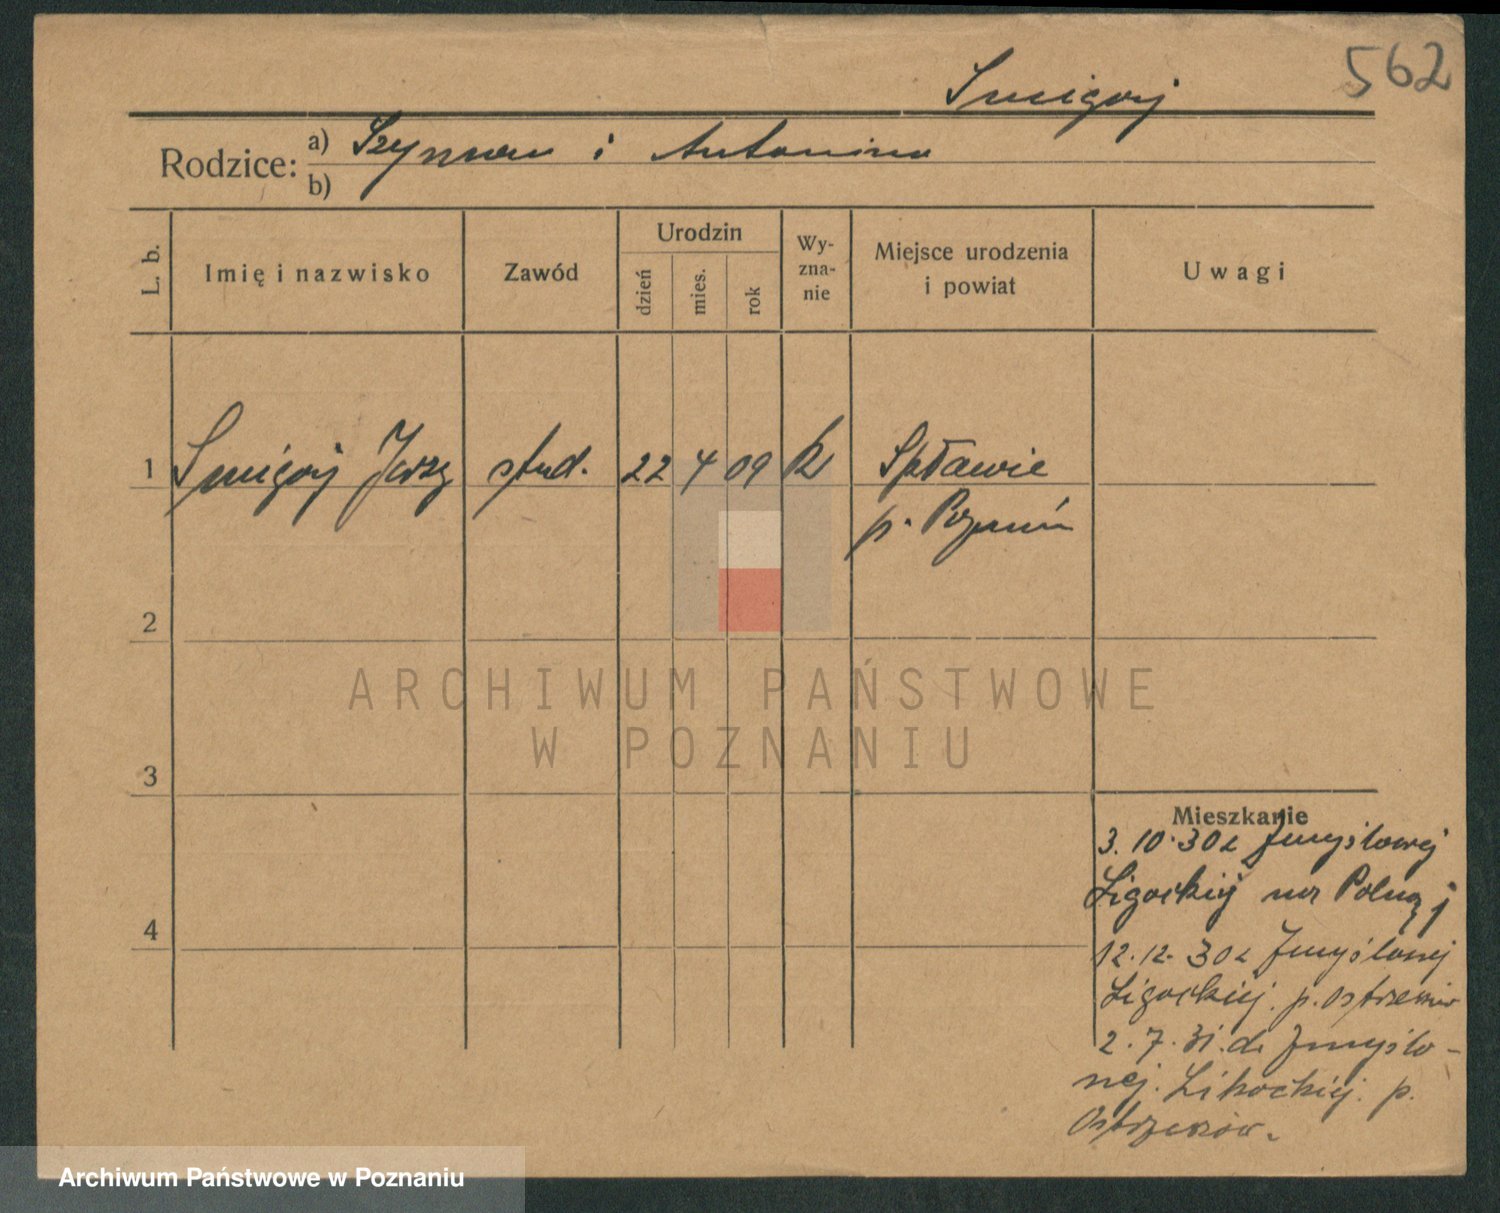 562
Smigaj
Rodzice: a) Szyman i Antonina
b)
L. b.
Imię i nazwisko
Zawód
Urodzin
dzień
mies.
rok
Wy-
zna-
nie
Miejsce urodzenia
i powiat
Uwagi
1 Smigaj Jerzy stud. 22 4 09 k Spławie
p. Poznań
2
3
4
Mieszkanie
3. 10. 30 z Zmyślonej
Ligockiej na Polną
12. 12. 30 z Zmyślonej
Ligockiej. p. Ostrzeszów
2. 7. 31. do Zmyślo-
nej. Ligockiej. p.
Ostrzeszów.
ARCHIWUM PAŃSTWOWE
W POZNANIU
Archiwum Państwowe w Poznaniu